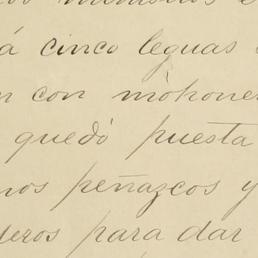 á cinco leguas
n con mòhone
quedó puesta
nos peñazcos y
deros para dar